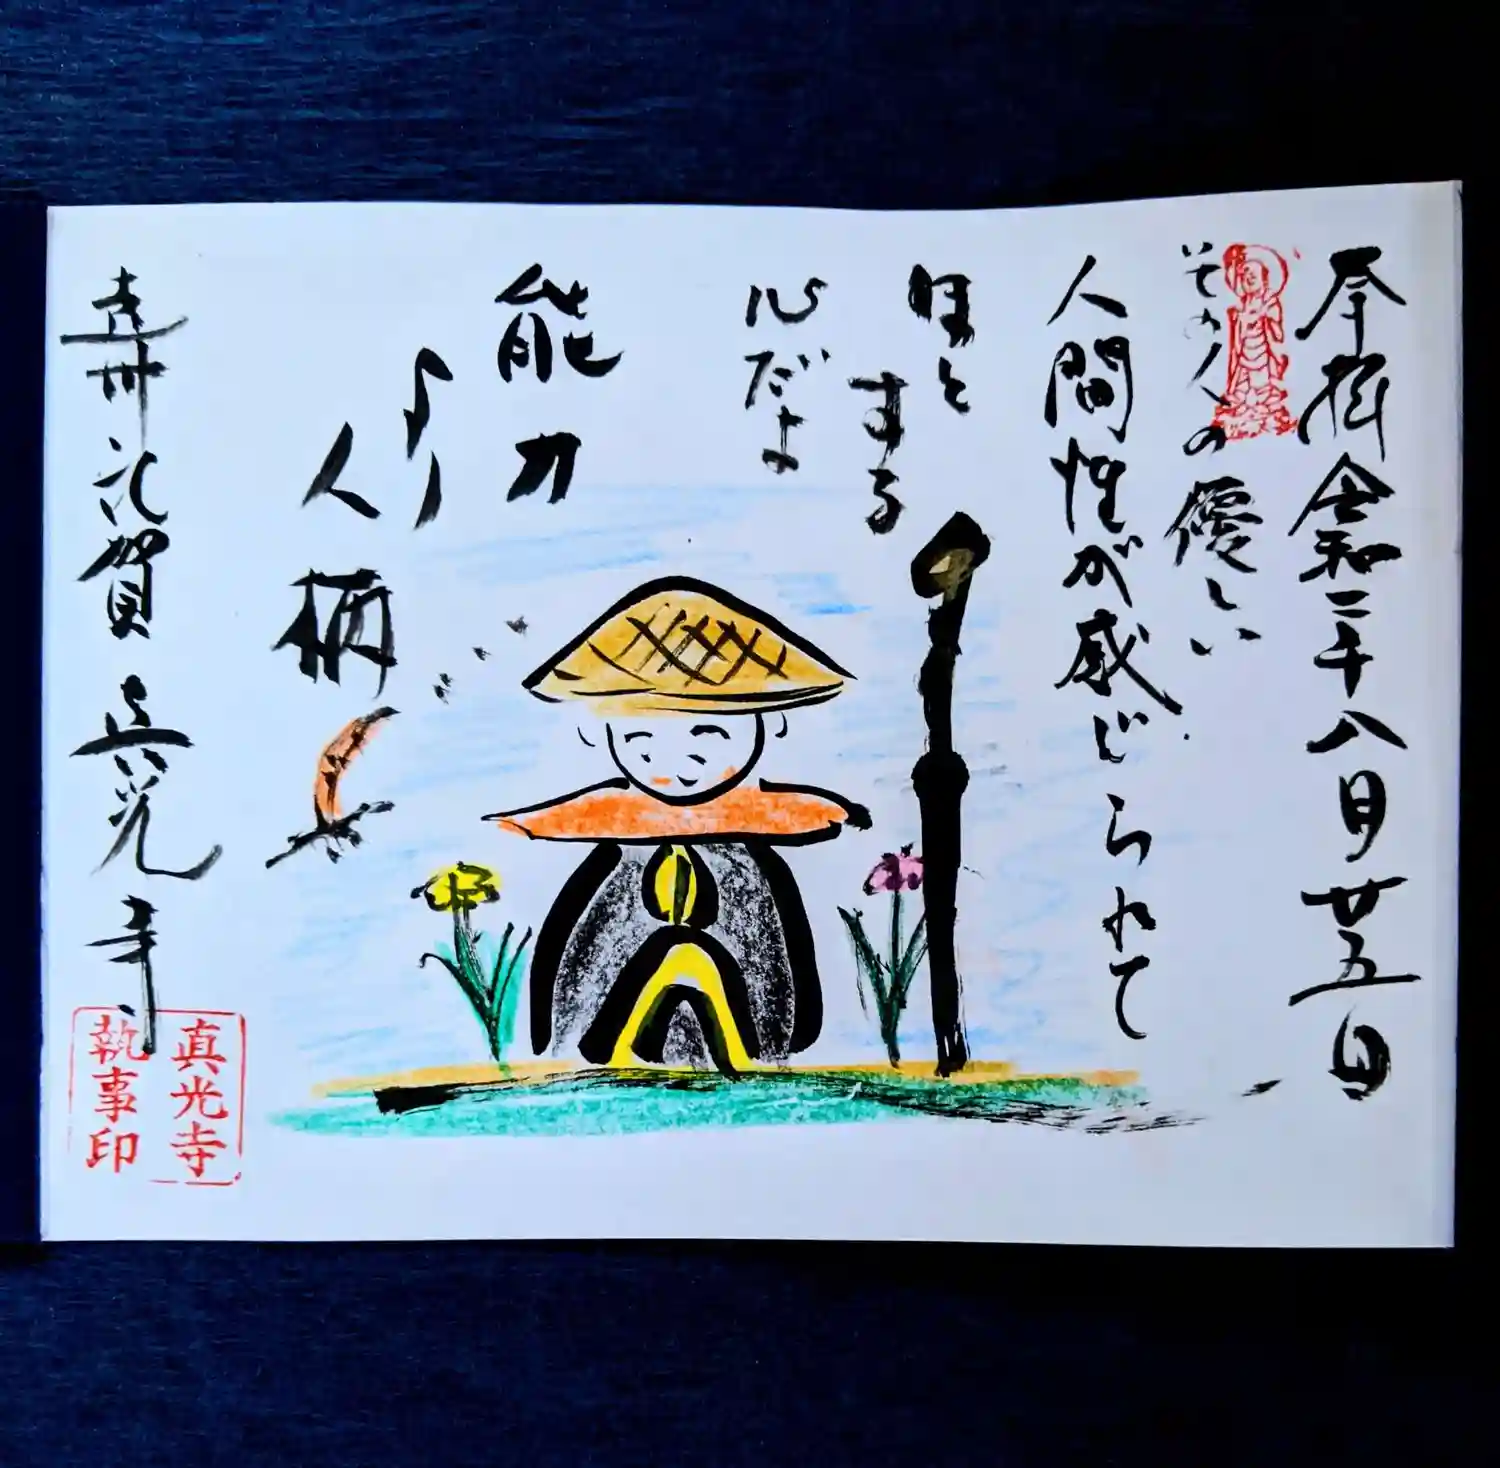 奉拝 令和二年八月廿五日
その人の優しい
人間性が感じられて
ほっと
する
心だよ
能力
より
人柄
遠州 花賀 真光寺
真光寺
執事印